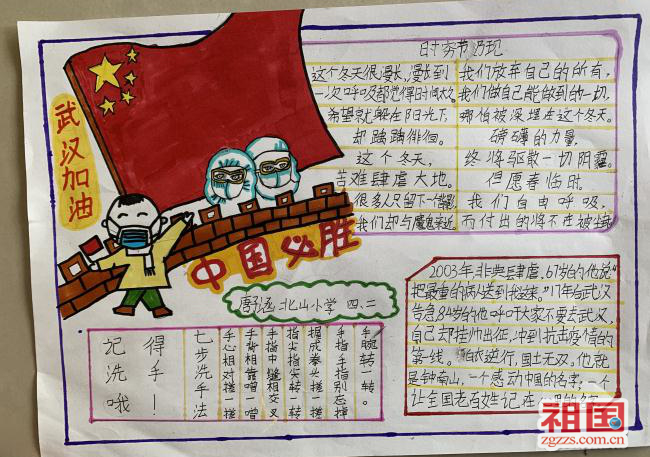 武汉加油
中国必胜
北山小学 四.二
时穷节乃现
这个冬天很漫长,漫长到
一次呼吸都觉得时间太久。
希望就躲在阳光下,
却踟蹰徘徊。
这个冬天,
苦难肆虐大地。
很多人只留下一个背影
我们却与魔鬼来近
我们放弃自己的所有,
我们做自己能做到的一切,
哪怕被深埋在这个冬天。
磅礴的力量,
终将驱散一切阴霾。
但愿春临时,
我们自由呼吸,
而付出的将不在被
记得
洗手
哦!
七步洗手法
手心相对搓一搓
手背相靠蹭一蹭
手指中缝相交叉
指尖指尖转一转
握成拳头搓一搓
手指手指别忘掉
手腕转一转。
2003年,非典肆虐,67岁的他说"
把最重的病人送到我这来。"17年后武汉
告急84岁的他呼吁大家不要去武汉,
自己却挂帅出征,冲到抗击疫情的
第一线。 逆行,国士无双,他就
是钟南山,一个感动中国的名字,一个
让全国老百姓记在
祖国
zgzzs.com.cn